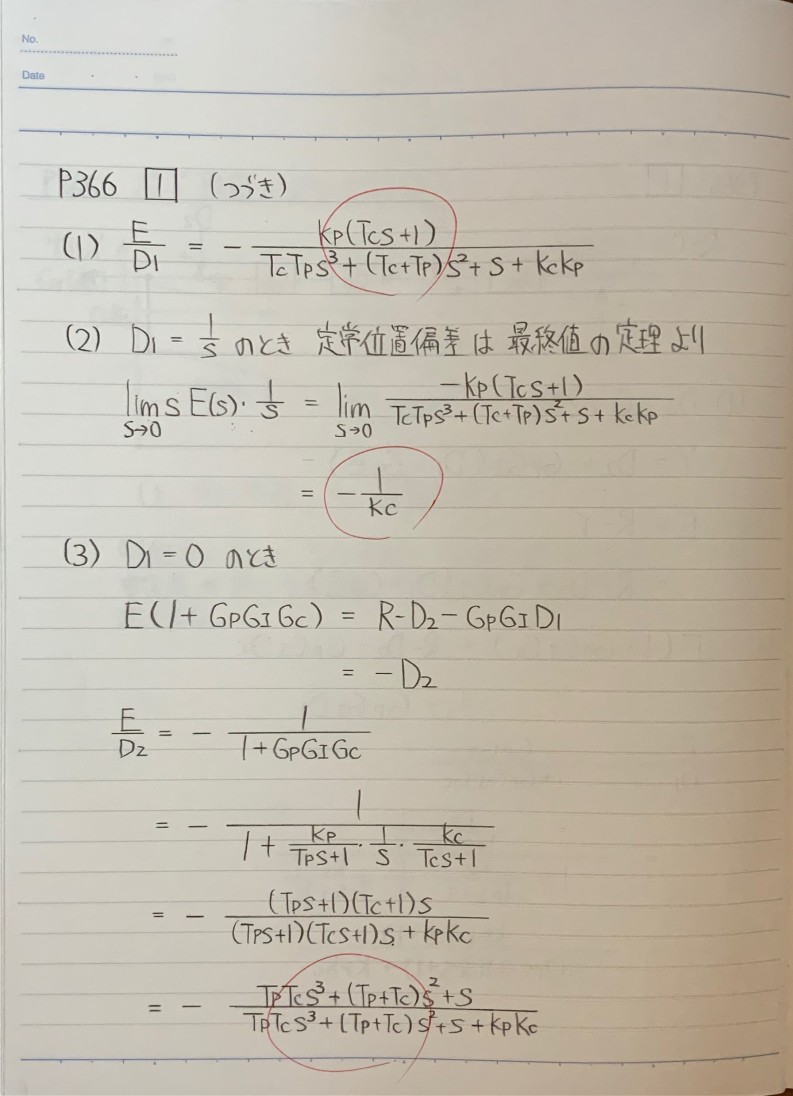 No.
Date
P366 [1] (つづき)
(1) E/D₁ = - Kp(Tcs+1) / TcTps³+(Tc+Tp)s²+s+KcKp
(2) D₁ = 1/s のとき 定常位置偏差は 最終値の定理より
lim s→0 s E(s)・1/s = lim s→0 -Kp(Tcs+1) / TcTps³+(Tc+Tp)s²+s+KcKp
= - 1/Kc
(3) D₁=0 のとき
E(1+GpGIGc) = R-D₂-GpGID₁
= -D₂
E/D₂ = - 1 / 1+GpGIGc
= - 1 / 1+ Kp/Tps+1 ・ 1/s ・ Kc/Tcs+1
= - (Tps+1)(Tc+1)s / (Tps+1)(Tcs+1)s+KpKc
= - TpTcs³+(Tp+Tc)s²+s / TpTcs³+(Tp+Tc)s²+s+KpKc